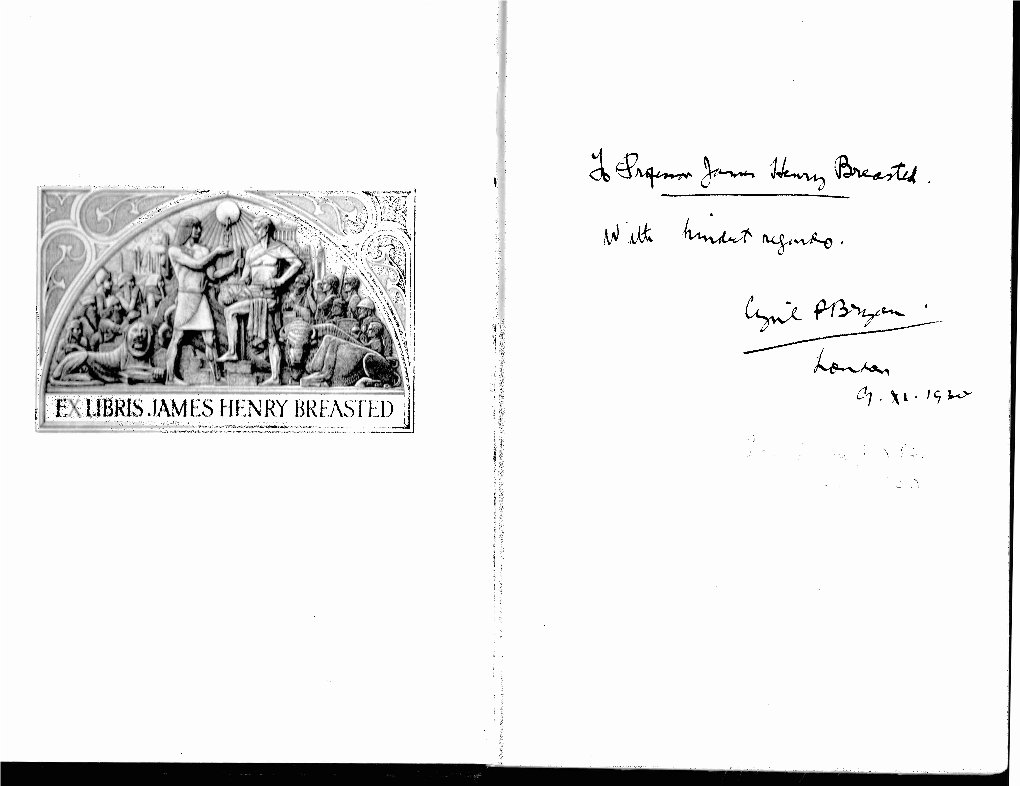 EX LIBRIS JAMES HENRY BREASTED
To Professor James Henry Breasted.
With kindest regards.
Cyril P Bryan.
London
9. XI. 1930